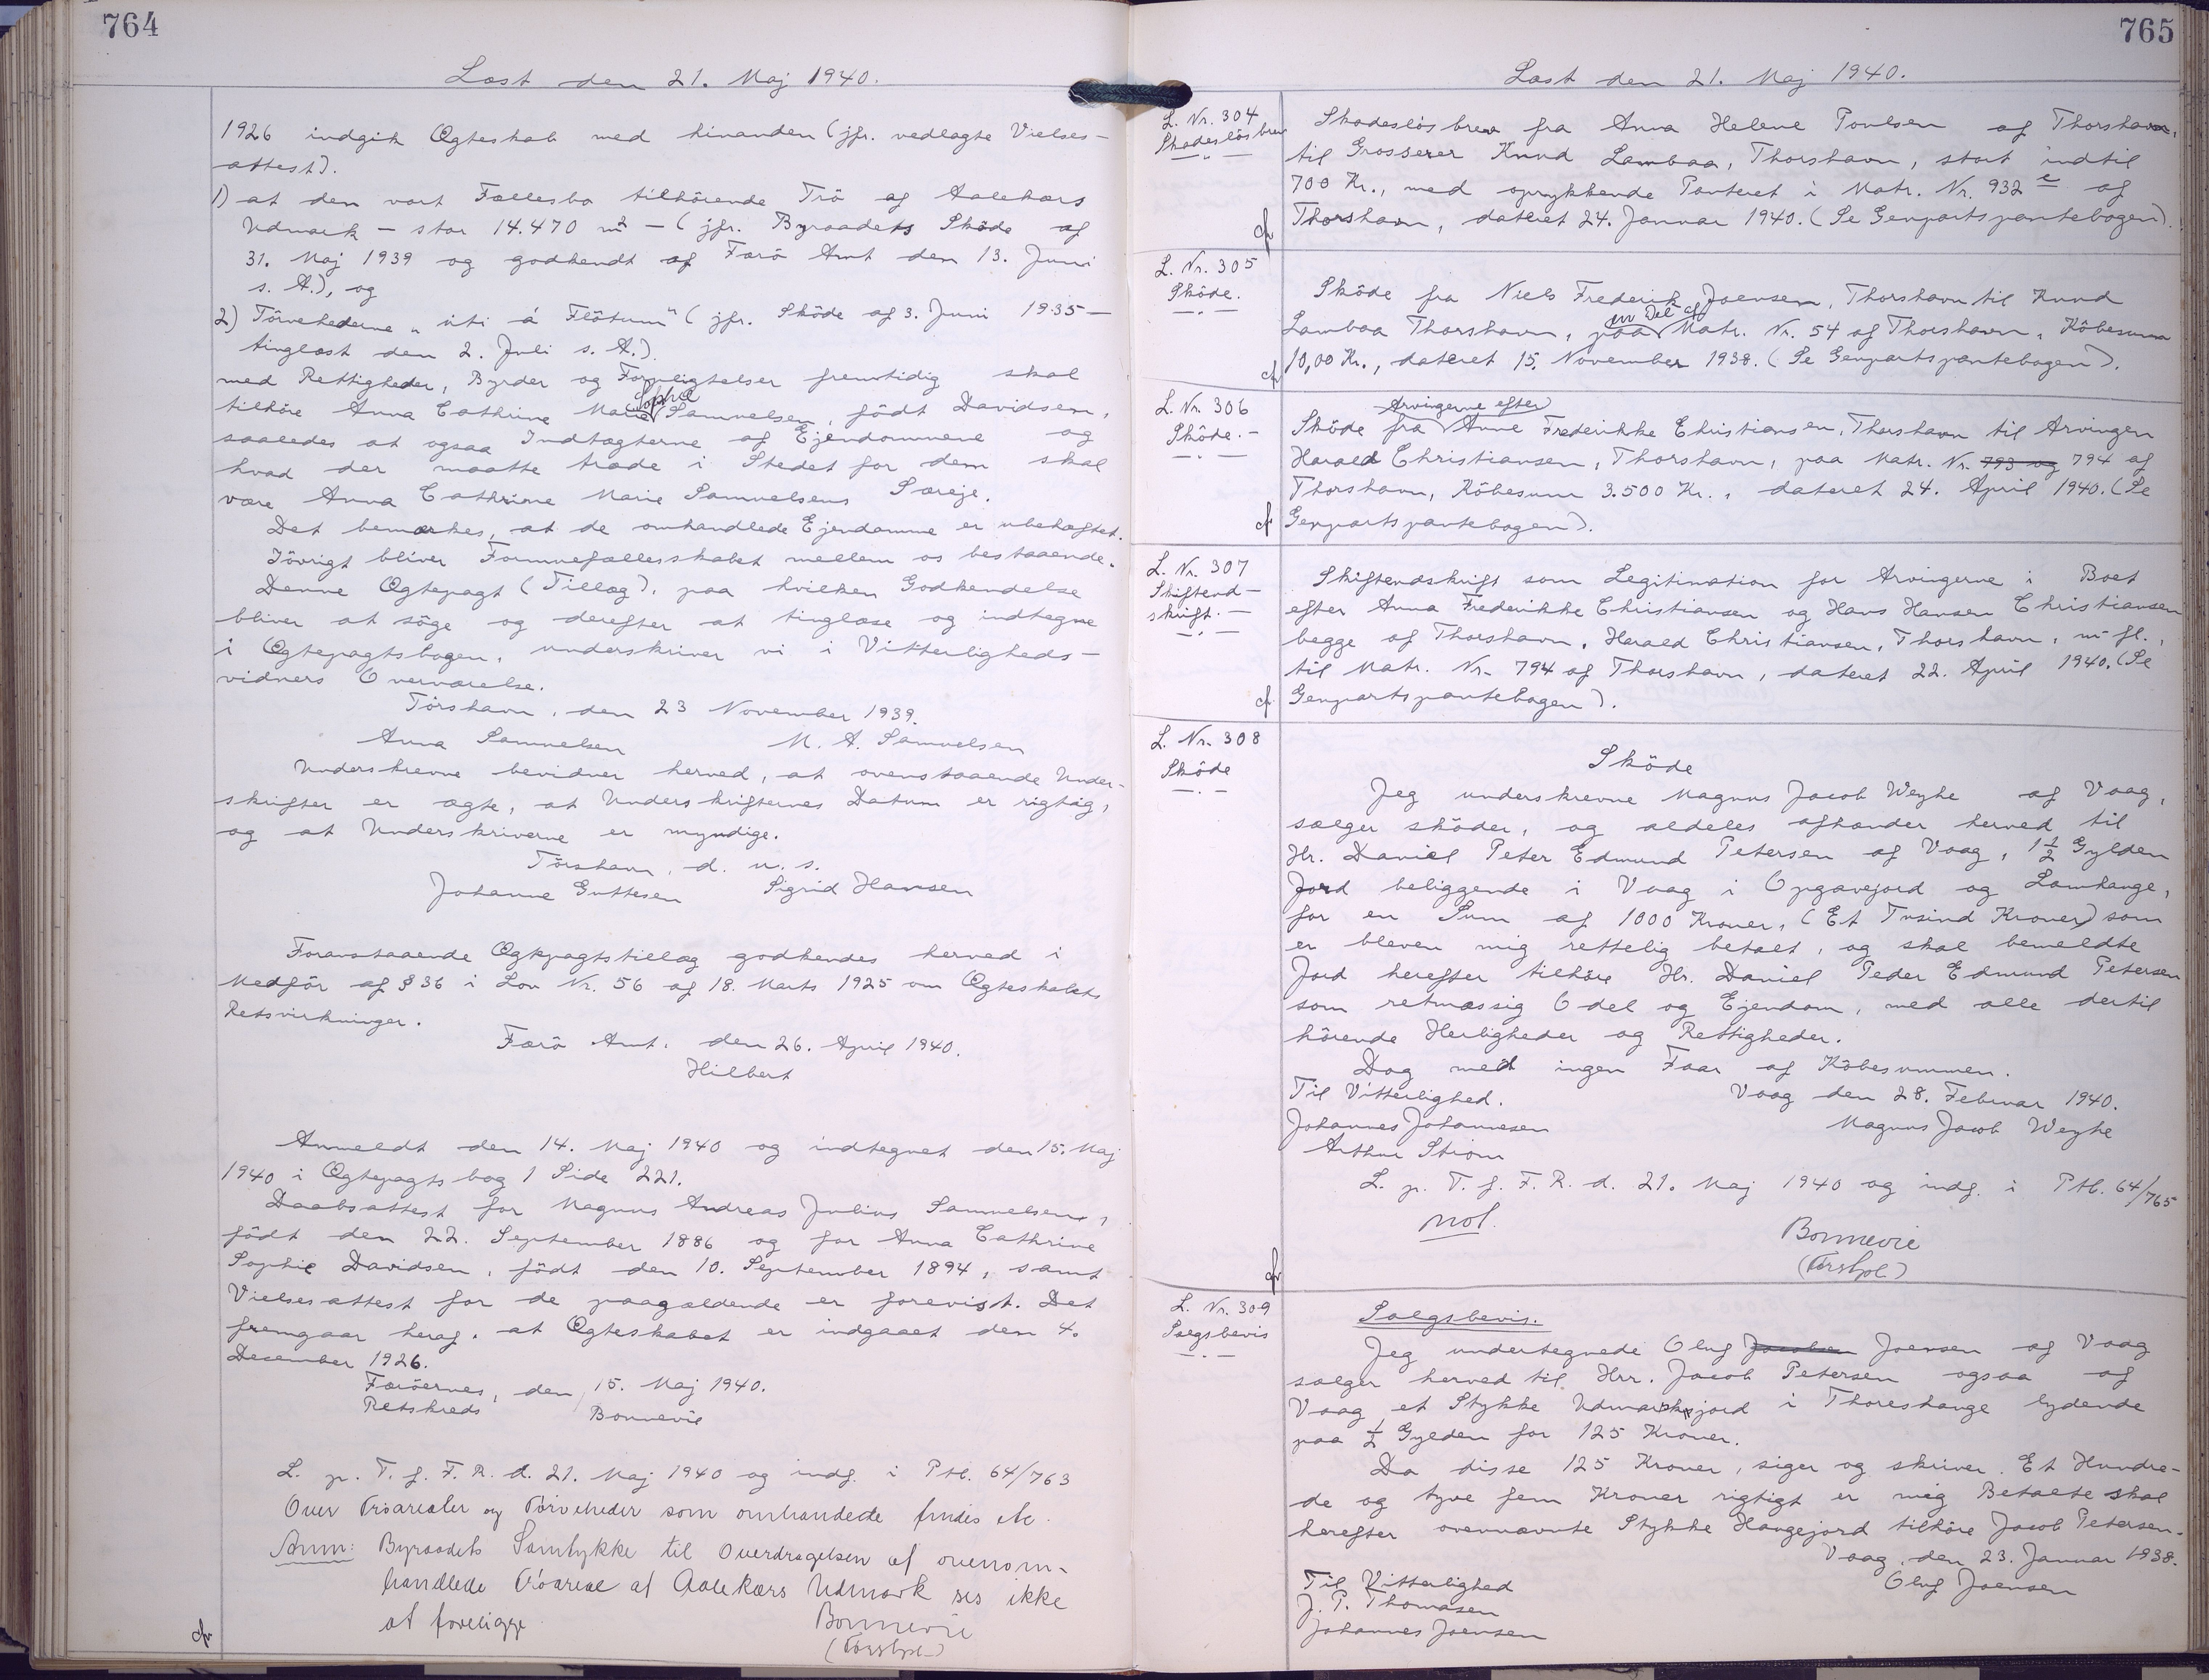 764
Læst den 21. Maj 1940.
1926 indgik Ægteskab med hinanden (jfr. vedlagte Vielses-
attest).
1) at den vort Fællesbo tilhörende Trö af Aalekærs
Udmark – stor 14.470 m² – (jfr. Byraadets Sköde af
31. Maj 1939 og godkendt af Færö Amt den 13. Juni
s. A.), og
2) Törvehederne „úti á Flötum" (jfr. Sköde af 3. Juni 1935 –
tinglæst den 2. Juli s. A.).
med Rettigheder, Byrder og Forpligtelser fremtidig skal
Sophie
tilhöre Anna Cathrine Marie Samuelsen, födt Davidsen,
saaledes at ogsaa Indtægterne af Ejendommene og
hvad der maatte træde i Stedet for dem skal
være Anna Cathrine Marie Samuelsens Særeje.
Det bemærkes, at de omhandlede Ejendomme er ubehæftet.
Iövrigt bliver Formuefællesskabet mellem os bestaaende.
Denne Ægtepagt (Tillæg), paa hvilken Godkendelse
bliver at söge og derefter at tinglæse og indtegne
i Ægtepagtsbogen, underskriver vi i Vitterligheds-
vidners Overværelse.
Tórshavn, den 23 November 1939.
Anna Samuelsen M. A. Samuelsen
Underskrevne bevidner herved, at ovenstaaende Under-
skrifter er ægte, at Underskrifternes Datum er rigtig,
og at Underskriverne er myndige.
Tórshavn, d. u. s.
Johanne Guttesen Sigrid Hansen
Foranstaaende Ægtepagtstillæg godkendes herved i
Medför af § 36 i Lov Nr. 56 af 18. Marts 1925 om Ægteskabets
Retsvirkninger.
Færö Amt, den 26. April 1940.
Hilbert
Anmeldt den 14. Maj 1940 og indtegnet den 15. Maj
1940 i Ægtepagtsbog 1 Side 221.
Daabsattest for Magnus Andreas Julius Samuelsen,
födt den 22. September 1886 og for Anna Cathrine
Sophie Davidsen, födt den 10. September 1894, samt
Vielsesattest for de paagældende er forevist. Det
fremgaar heraf, at Ægteskabet er indgaaet den 4.
December 1926.
Færöernes, den 15. Maj 1940.
Retskreds Bonnevie
L. p. T. f. F. R. d. 21. Maj 1940 og indf. i Ptb. 64/763
Over Tröarealer og Törveheder som omhandlede findes etc.
Anm: Byraadets Samtykke til Overdragelsen af ovenom-
handlede Tröareal af Aalekærs Udmark ses ikke
at foreligge.
Bonnevie
cfr (Torshpl.)
765
Læst den 21. Maj 1940.
L. Nr. 304
Skadeslösbrev
Skadeslösbrev fra Anna Helene Poulsen af Thorshavn,
til Grosserer Knud Lambaa, Thorshavn, stort indtil
700 Kr., med oprykkende Panteret i Matr. Nr. 932 e af
Thorshavn, dateret 24. Januar 1940. (Se Genpartspantebogen).
cfr
L. Nr. 305
Sköde.
Sköde fra Niels Frederik Joensen, Thorshavn til Knud
en Del af
Lambaa Thorshavn, paa Matr. Nr. 54 af Thorshavn, Köbesum
10,00 Kr., dateret 15. November 1938. (Se Genpartspantebogen).
cfr
L. Nr. 306
Sköde.
Arvingerne efter
Sköde fra Anne Frederikke Christiansen, Thorshavn til Arvingen
Harald Christiansen, Thorshavn, paa Matr. Nr. 793 og 794 af
Thorshavn, Köbesum 3.500 Kr., dateret 24. April 1940. (Se
Genpartspantebogen).
cfr
L. Nr. 307
Skifteud-
skrift.
Skifteudskrift som Legitimation for Arvingerne i Boet
efter Anna Frederikke Christiansen og Hans Hansen Christiansen
begge af Thorshavn, Harald Christiansen, Thorshavn, m. fl.,
til Matr. Nr. 794 af Thorshavn, dateret 22. April 1940. (Se
Genpartspantebogen).
cfr
L. Nr. 308
Sköde
Sköde
Jeg underskrevne Magnus Jacob Weyhe af Vaag,
sælger sköder, og aldeles afhænder herved til
Hr. Daniel Peter Edmund Petersen af Vaag, 1 1/2 Gylden
Jord beliggende i Vaag i Opgavejord og Lamhauge,
for en Sum af 1000 Kroner, (Et Tusind Kroner) som
er bleven mig rettelig betalt, og skal bemeldte
Jord herefter tilhöre Hr. Daniel Peder Edmund Petersen
som retmæssig Odel og Ejendom, med alle dertil
hörende Herligheder og Rettigheder.
Dog med ingen Faar af Köbesummen.
Til Vitterlighed. Vaag den 28. Februar 1940.
Johannes Johannesen Magnus Jacob Weyhe
Arthur Strøm
L. p. T. f. F. R. d. 21. Maj 1940 og indf. i Ptb. 64/765
Bonnevie
(Torshpl.)
cfr
L. Nr. 309
Salgsbevis
Salgsbevis.
Jeg undertegnede Oluf Jacobsen Joensen af Vaag
sælger herved til Hrr. Jacob Petersen ogsaa af
Vaag et Stykke Udmarksjord i Thoreshauge lydende
paa 1/2 Gylden for 125 Kroner.
Da disse 125 Kroner, siger og skriver Et Hundre-
de og tyve fem Kroner rigtigt er mig Betalte skal
herefter ovennævnte Stykke Haugejord tilhöre Jacob Petersen.
Vaag, den 23. Januar 1938.
Til Vitterlighed Oluf Joensen
J. P. Thomasen
Johannes Joensen